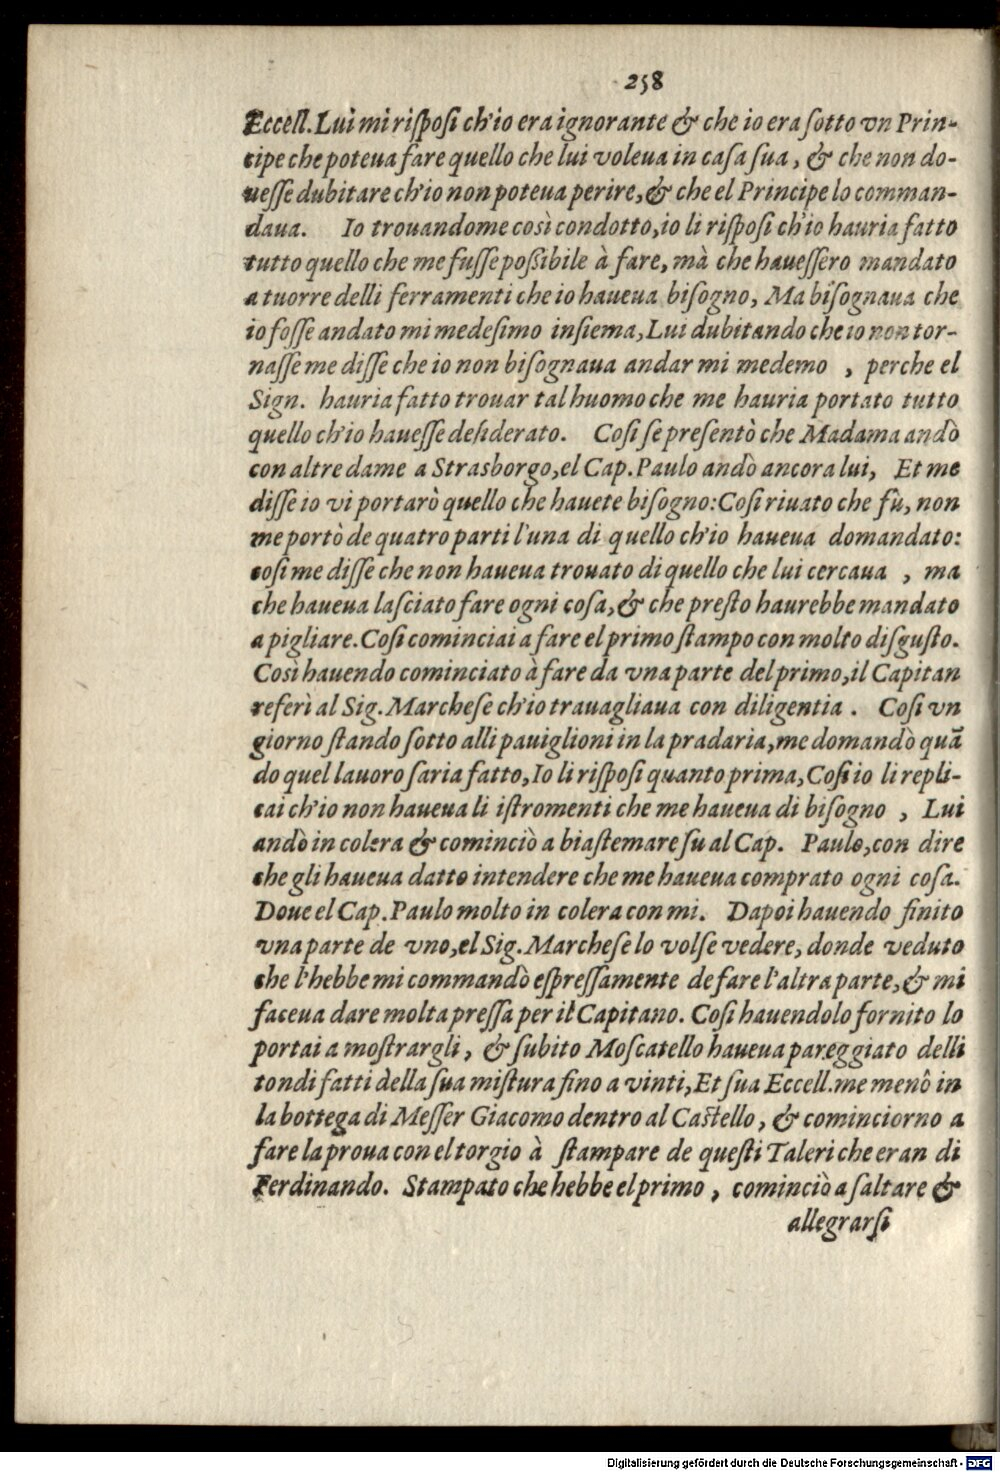 258
Eccell. Lui mi riſpoſi ch'io era ignorante & che io era ſotto vn Prin-
cipe che poteua fare quello che lui voleua in caſa ſua, & che non do-
ueſſe dubitare ch'io non poteua perire, & che el Principe lo comman-
daua. Io trouandome così condotto, io li riſpoſi ch'io hauria fatto
tutto quello che me fuſſe poßibile à fare, mà che haueſſero mandato
a tuorre delli ferramenti che io haueua biſogno, Ma biſognaua che
io foſſe andato mi medeſimo inſiema, Lui dubitando che io non tor-
naſſe me diſſe che io non biſognaua andar mi medemo , perche el
Sign. hauria fatto trouar tal huomo che me hauria portato tutto
quello ch'io haueſſe deſiderato. Coſi ſe preſentò che Madama andò
con altre dame a Strasborgo, el Cap. Paulo andò ancora lui, Et me
diſſe io vi portarò quello che hauete biſogno: Coſi riuato che fù, non
me portò de quatro parti l'una di quello ch'io haueua domandato:
coſi me diſſe che non haueua trouato di quello che lui cercaua , ma
che haueua laſciato fare ogni coſa, & che preſto haurebbe mandato
a pigliare. Coſi cominciai a fare el primo ſtampo con molto diſguſto.
Così hauendo cominciato à fare da vna parte del primo, il Capitan
referì al Sig. Marcheſe ch'io trauagliaua con diligentia . Coſi vn
giorno ſtando ſotto alli pauiglioni in la pradaria, me domandò quã
do quel lauoro ſaria fatto, Io li riſpoſi quanto prima, Coſi io li repli-
cai ch'io non haueua li iſtromenti che me haueua di biſogno , Lui
andò in colera & cominciò a biaſtemare ſu al Cap. Paulo, con dire
che gli haueua datto intendere che me haueua comprato ogni coſa.
Doue el Cap. Paulo molto in colera con mi. Dapoi hauendo finito
vna parte de vno, el Sig. Marcheſe lo volſe vedere, donde veduto
che l'hebbe mi commandò eſpreſſamente de fare l'altra parte, & mi
faceua dare molta preſſa per il Capitano. Coſi hauendolo fornito lo
portai a moſtrargli, & ſubito Moſcatello haueua pareggiato delli
tondi fatti della ſua miſtura fino a vinti, Et ſua Eccell. me menô in
la bottega di Meſſer Giacomo dentro al Caſtello, & cominciorno a
fare la proua con el torgio à ſtampare de queſti Taleri che eran di
Ferdinando. Stampato che hebbe el primo , cominciò a ſaltare &
allegrarſi
Digitalisierung gefördert durch die Deutsche Forschungsgemeinschaft - DFG